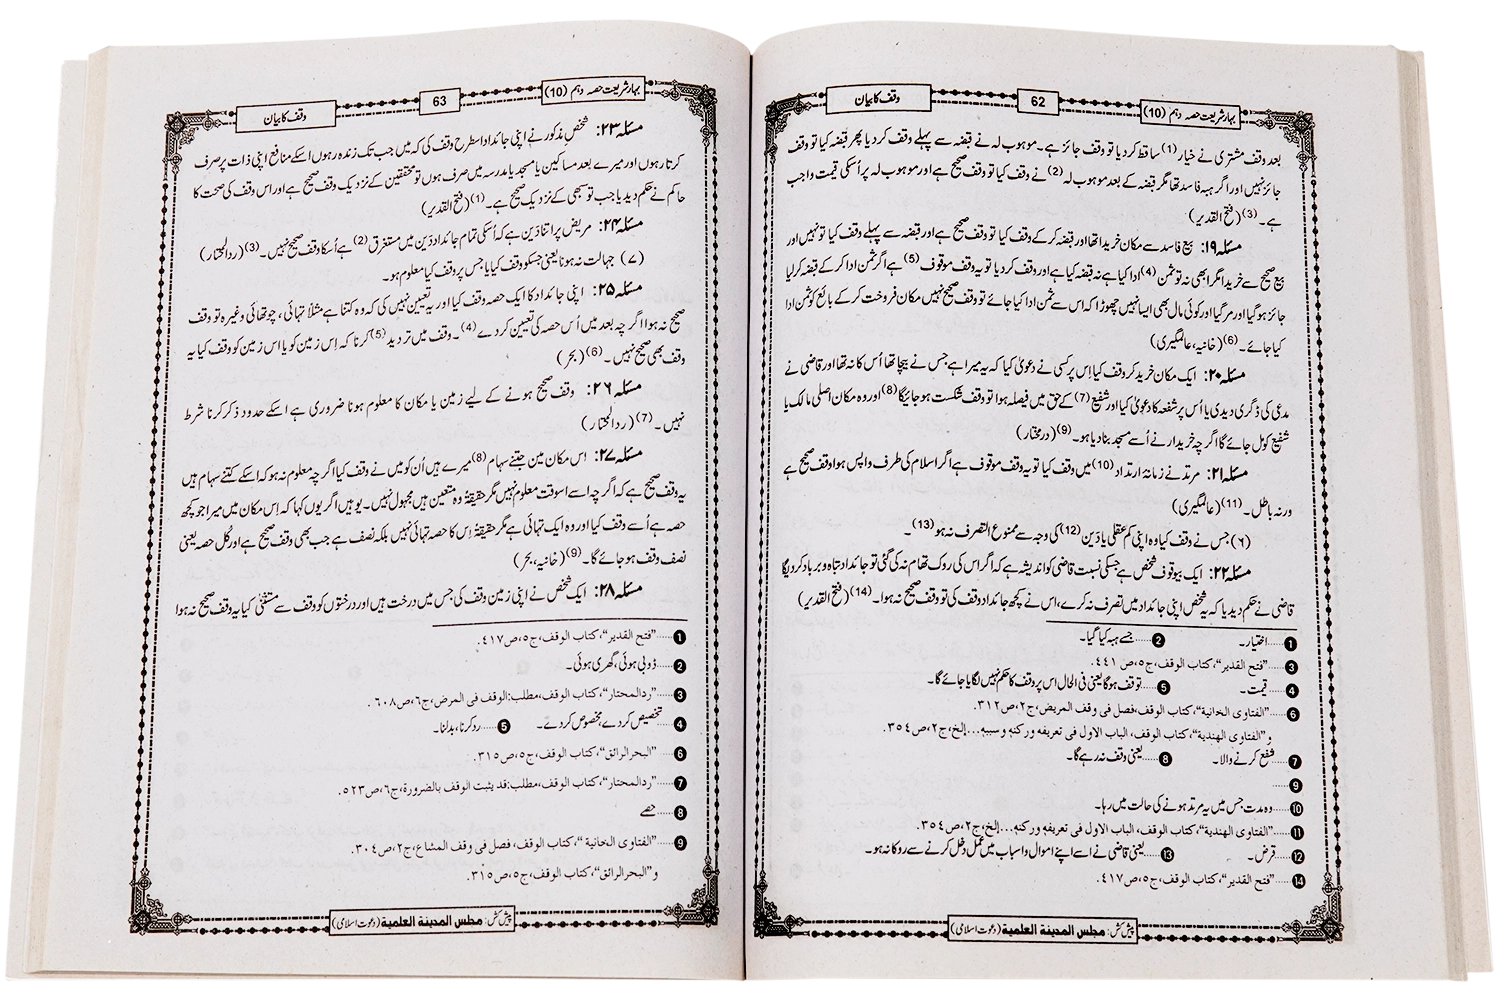 بہار شریعت حصہ دہم (10)
62
وقف کا بیان
بعد وقف مشتری نے خیار (1) ساقط کر دیا تو وقف جائز ہے۔ موہوب لہ نے قبضہ سے پہلے وقف کر دیا پھر قبضہ کیا تو وقف
جائز نہیں اور اگر ہبہ فاسد تھا مگر قبضہ کے بعد موہوب لہ (2) نے وقف کیا تو وقف صحیح ہے اور موہوب لہ پر اُسکی قیمت واجب
ہے۔ (3) (فتح القدیر)
مسئلہ ۱۹: بیع فاسد سے مکان خریدا تھا اور قبضہ کر کے وقف کیا تو وقف صحیح ہے اور قبضہ سے پہلے وقف کیا تو نہیں اور
بیع صحیح سے خریدا مگر ابھی نہ تو ثمن (4) ادا کیا ہے نہ قبضہ کیا ہے اور وقف کر دیا تو یہ وقف موقوف (5) ہے اگر ثمن ادا کر کے قبضہ کر لیا
جائز ہو گیا اور مر گیا اور کوئی مال بھی ایسا نہیں چھوڑا کہ اس سے ثمن ادا کیا جائے تو وقف صحیح نہیں مکان فروخت کر کے بائع کو ثمن ادا
کیا جائے۔ (6) (خانیہ، عالمگیری)
مسئلہ ۲۰: ایک مکان خرید کر وقف کیا اِس پر کسی نے دعویٰ کیا کہ یہ میرا ہے جس نے بیچا تھا اُس کا نہ تھا اور قاضی نے
مدعی کی ڈگری دیدی یا اُس پر شفعہ کا دعویٰ کیا اور شفیع (7) کے حق میں فیصلہ ہوا تو وقف شکست ہو جائیگا (8) اور وہ مکان اصلی مالک یا
شفیع کو مل جائے گا اگر چہ خریدار نے اُسے مسجد بنا دیا ہو۔ (9) (درمختار)
مسئلہ ۲۱: مرتد نے زمانۂ ارتداد (10) میں وقف کیا تو یہ وقف موقوف ہے اگر اسلام کی طرف واپس ہوا وقف صحیح ہے
ورنہ باطل۔ (11) (عالمگیری)
(۶) جس نے وقف کیا وہ اپنی کم عقلی یا دَین (12) کی وجہ سے ممنوع التصرف نہ ہو (13)۔
مسئلہ ۲۲: ایک بیوقوف شخص ہے جسکی نسبت قاضی کو اندیشہ ہے کہ اگر اس کی روک تھام نہ کی گئی تو جائداد تباہ و برباد کر دیگا
قاضی نے حکم دیدیا کہ یہ شخص اپنی جائداد میں تصرف نہ کرے، اس نے کچھ جائداد وقف کی تو وقف صحیح نہ ہوا۔ (14) (فتح القدیر)
❶......اختیار۔ ❷......جسے ہبہ کیا گیا۔
❸......"فتح القدير"، كتاب الوقف، ج٥، ص٤٤١.
❹......قیمت۔ ❺......توقف ہو گا یعنی فی الحال اس پر وقف کا حکم نہیں لگایا جائے گا۔
❻......"الفتاوى الخانية"، كتاب الوقف، فصل فى وقف المريض، ج٢، ص٣١٢.
و"الفتاوى الهندية"، كتاب الوقف، الباب الاول فى تعريفه وركنه وسببه...إلخ، ج٢، ص٣٥٤.
❼......شفع کرنے والا۔ ❽......یعنی وقف نہ رہے گا۔
❾......
❿......وہ مدت جس میں یہ مرتد ہونے کی حالت میں رہا۔
⓫......"الفتاوى الهندية"، كتاب الوقف، الباب الاول فى تعريفه وركنه...إلخ، ج٢، ص٣٥٤.
⓬......قرض۔ ⓭......یعنی قاضی نے اسے اپنے اموال و اسباب میں عمل دخل کرنے سے روکا نہ ہو۔
⓮......"فتح القدير"، كتاب الوقف، ج٥، ص٤١٧.
پیش کش: مجلس المدینۃ العلمیۃ (دعوت اسلامی)
بہار شریعت حصہ دہم (10)
63
وقف کا بیان
مسئلہ ۲۳: شخصِ مذکور نے اپنی جائداد اسطرح وقف کی کہ میں جب تک زندہ رہوں اسکے منافع اپنی ذات پر صرف
کرتا رہوں اور میرے بعد مساکین یا مسجد یا مدرسہ میں صرف ہوں تو محققین کے نزدیک وقف صحیح ہے اور اس وقف کی صحت کا
حاکم نے حکم دیدیا جب تو سبھی کے نزدیک صحیح ہے۔ (1) (فتح القدیر)
مسئلہ ۲۴: مریض پر اتنا دَین ہے کہ اُسکی تمام جائداد دَین میں مستغرق (2) ہے اُسکا وقف صحیح نہیں۔ (3) (ردالمحتار)
(۷) جہالت نہ ہونا یعنی جسکو وقف کیا یا جس پر وقف کیا معلوم ہو۔
مسئلہ ۲۵: اپنی جائداد کا ایک حصہ وقف کیا اور یہ تعیین نہیں کی کہ وہ کتنا ہے مثلاً تہائی، چوتھائی وغیرہ تو وقف
صحیح نہ ہوا اگر چہ بعد میں اُس حصہ کی تعیین کر دے (4)۔ وقف میں تردید (5) کرنا کہ اِس زمین کو یا اس زمین کو وقف کیا یہ
وقف بھی صحیح نہیں۔ (6) (بحر)
مسئلہ ۲۶: وقف صحیح ہونے کے لیے زمین یا مکان کا معلوم ہونا ضروری ہے اسکے حدود ذکر کرنا شرط
نہیں۔ (7) (ردالمحتار)
مسئلہ ۲۷: اِس مکان میں جتنے سہام (8) میرے ہیں اُن کو میں نے وقف کیا اگر چہ معلوم نہ ہو کہ اسکے کتنے سہام ہیں
یہ وقف صحیح ہے کہ اگر چہ اسے اسوقت معلوم نہیں مگر حقیقۃً وہ متعین ہیں مجہول نہیں۔ یوہیں اگر یوں کہا کہ اِس مکان میں میرا جو کچھ
حصہ ہے اُسے وقف کیا اور وہ ایک تہائی ہے مگر حقیقۃً اِس کا حصہ تہائی نہیں بلکہ نصف ہے جب بھی وقف صحیح ہے اور کُل حصہ یعنی
نصف وقف ہو جائے گا۔ (9) (خانیہ، بحر)
مسئلہ ۲۸: ایک شخص نے اپنی زمین وقف کی جس میں درخت ہیں اور درختوں کو وقف سے مستثنٰی کیا یہ وقف صحیح نہ ہوا
❶......"فتح القدير"، كتاب الوقف، ج٥، ص٤١٧.
❷......ڈوبی ہوئی، گھری ہوئی۔
❸......"ردالمحتار"، كتاب الوقف، مطلب: الوقف فى المرض، ج٦، ص٦٠٨.
❹......تخصیص کر دے، مخصوص کر دے۔ ❺......رد کرنا، بدلنا۔
❻......"البحر الرائق"، كتاب الوقف، ج٥، ص٣١٥.
❼......"ردالمحتار"، كتاب الوقف، مطلب: قد يثبت الوقف بالضرورة، ج٦، ص٥٢٣.
❽......حصے
❾......"الفتاوى الخانية"، كتاب الوقف، فصل فى وقف المشاع، ج٢، ص٣٠٤.
و"البحر الرائق"، كتاب الوقف، ج٥، ص٣١٥.
پیش کش: مجلس المدینۃ العلمیۃ (دعوت اسلامی)